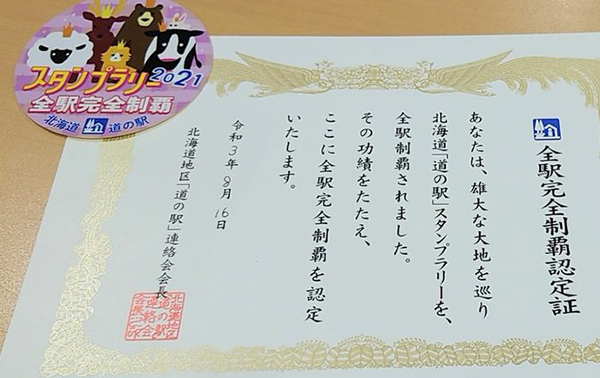 スタンプラリー2021
全駅完全制覇
北海道 道の駅
全駅完全制覇認定証
あなたは、雄大な大地を巡り
北海道「道の駅」スタンプラリーを、
全駅制覇されました。
その功績をたたえ、
ここに全駅完全制覇を認定
いたします。
令和3年8月16日
北海道地区「道の駅」連絡会会長
北海道地区
道の駅
連絡会
会長之印